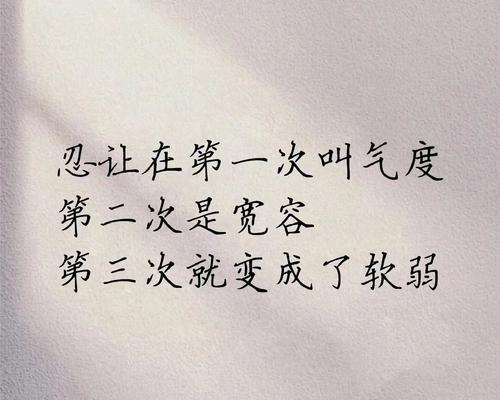 忍让在第一次叫气度
第二次是宽容
第三次就变成了软弱